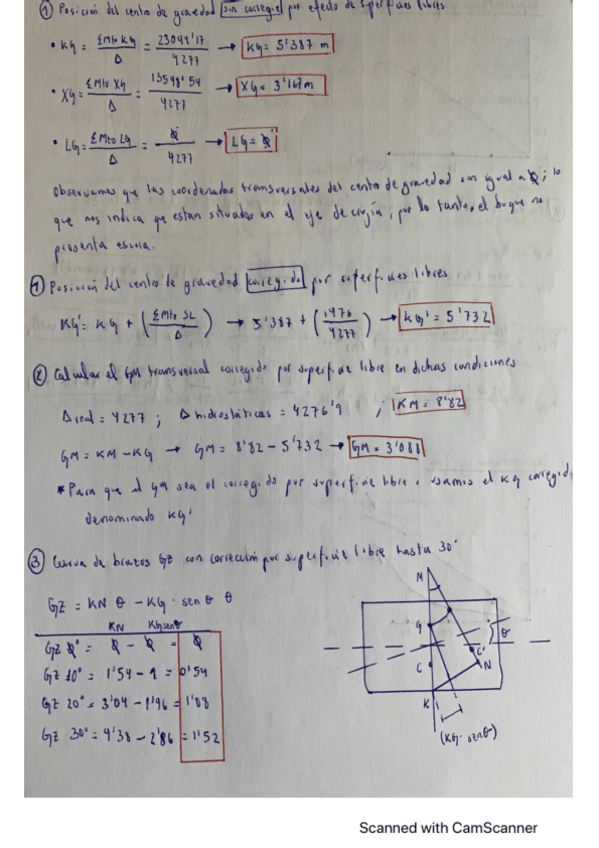 ① Posición del centro de gravedad sin corregir por efecto de superficies libres
• KG = ΣMto KG / Δ = 23041'17 / 4277 → KG = 5'387 m
• XG = ΣMto XG / Δ = 13548'54 / 4277 → XG = 3'167 m
• LG = ΣMto LG / Δ = 0 / 4277 → LG = 0
Observamos que las coordenadas transversales del centro de gravedad son igual a 0; lo
que nos indica que estan situadas en el eje de crujía, por lo tanto, el buque no
presenta escora.
① Posición del centro de gravedad corregido por superficies libres
KG' = KG + (ΣMto SL / Δ) → 5'387 + (1476 / 4277) → KG' = 5'732
② Calcular el GM transversal corregido por superficie libre en dichas condiciones
Δ real = 4277 ; Δ hidrostáticas = 4276'9 ; KM = 8'82
GM = KM - KG → GM = 8'82 - 5'732 → GM = 3'088
* Para que el GM sea el corregido por superficie libre, usamos el KG corregido
denominado KG'
③ Curva de brazos GZ con corrección por superficie libre hasta 30°
GZ = KN θ - KG · sen θ θ
KN KG senθ
GZ 0° = 0 - 0 = 0
GZ 10° = 1'54 - 1 = 0'54
GZ 20° = 3'04 - 1'96 = 1'08
GZ 30° = 4'38 - 2'86 = 1'52
M
G
θ
C
C'
N
K
(KG · senθ)
Scanned with CamScanner